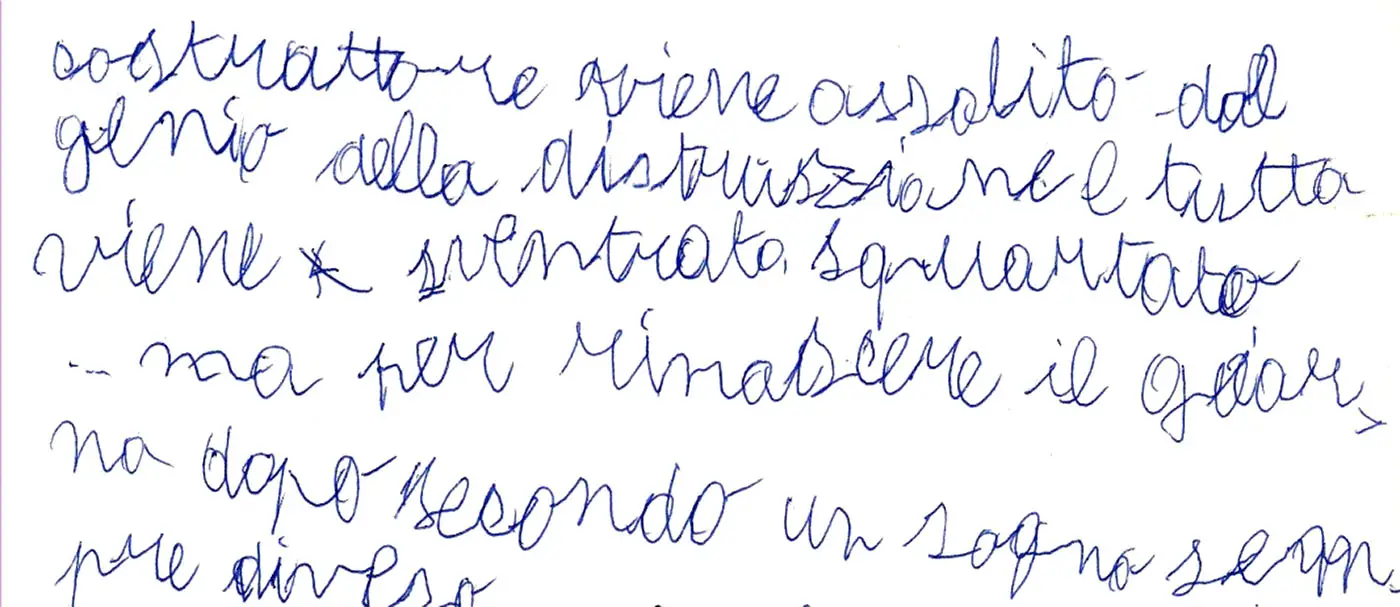 costruttore viene assalito dal
genio della distruzione e tutto
viene sventrato squartato
... ma per rinascere il gior,
no dopo secondo un sogno sem,
pre diverso